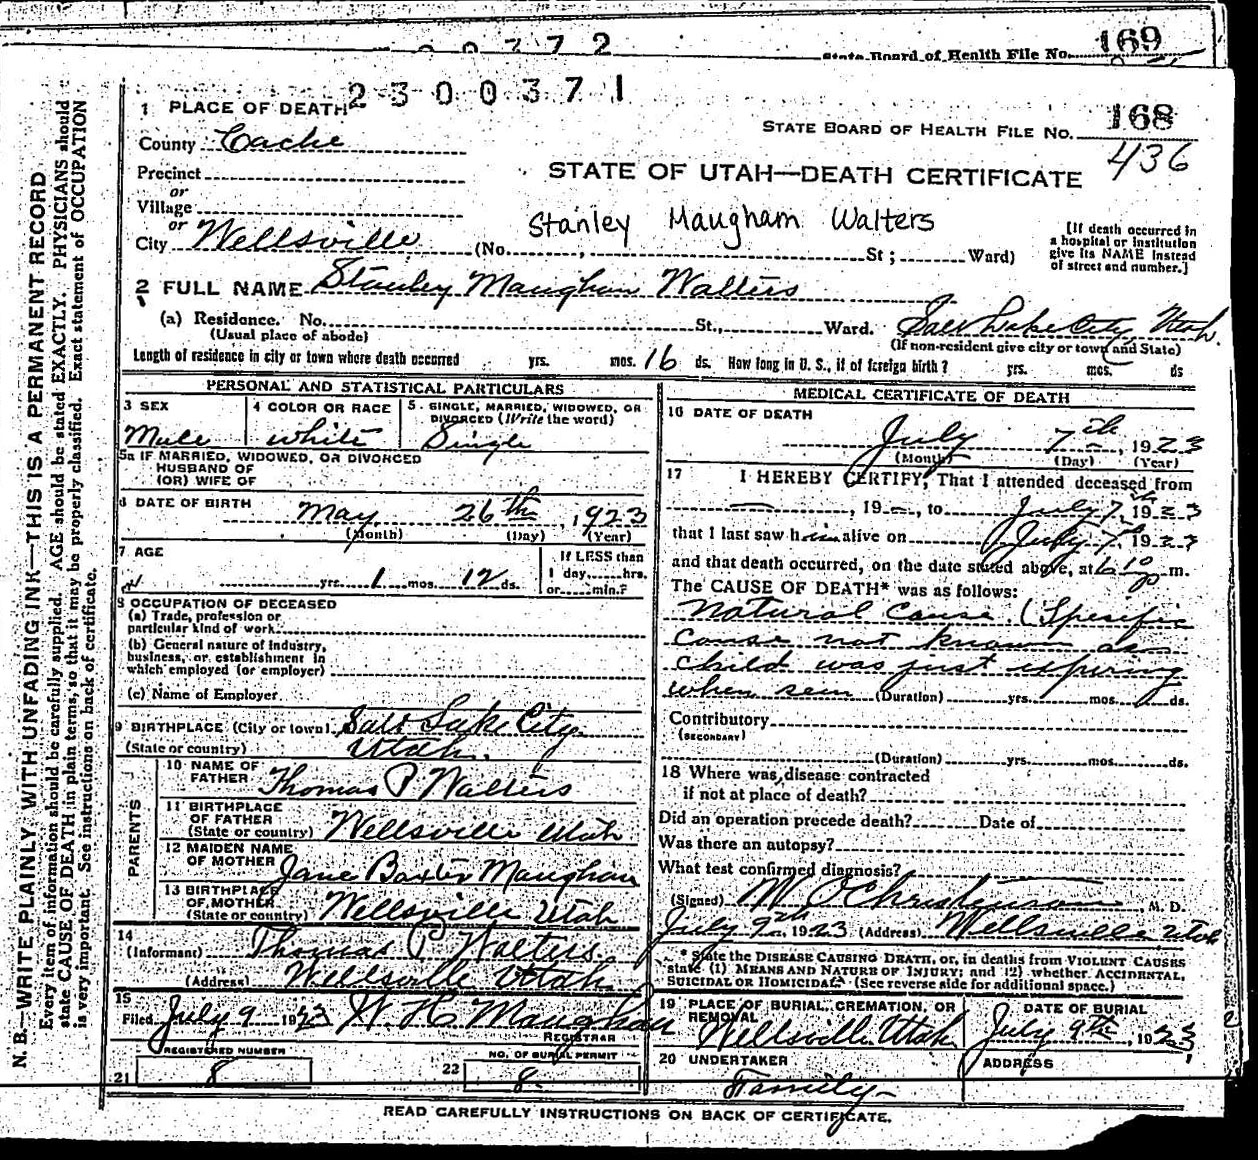 00372
State Board of Health File No. 169
2300371
1 PLACE OF DEATH
STATE BOARD OF HEALTH FILE NO. 168
436
County Cache
STATE OF UTAH—DEATH CERTIFICATE
Precinct
or
Village
or
City Wellsville (No. , St ; Ward)
Stanley Maugham Walters
[If death occurred in
a hospital or institution
give its NAME instead
of street and number.]
2 FULL NAME Stanley Maughan Walters
(a) Residence. No. St., Ward. Salt Lake City Utah.
(Usual place of abode) (If non-resident give city or town and State)
Length of residence in city or town where death occurred yrs. mos. 16 ds. How long in U. S., if of foreign birth? yrs. mos. ds
PERSONAL AND STATISTICAL PARTICULARS
3 SEX
Male
4 COLOR OR RACE
white
5 SINGLE, MARRIED, WIDOWED, OR
DIVORCED (Write the word)
Single
5a IF MARRIED, WIDOWED, OR DIVORCED
HUSBAND OF
(OR) WIFE OF
6 DATE OF BIRTH
May 26th, 1923
(Month) (Day) (Year)
7 AGE
yrs. 1 mos. 12 ds.
If LESS than
1 day, hrs.
or min.?
8 OCCUPATION OF DECEASED
(a) Trade, profession or
particular kind of work
(b) General nature of industry,
business, or establishment in
which employed (or employer)
(c) Name of Employer
9 BIRTHPLACE (City or town) Salt Lake City
(State or country) Utah.
PARENTS
10 NAME OF
FATHER Thomas P Walters
11 BIRTHPLACE
OF FATHER
(State or country) Wellsville Utah
12 MAIDEN NAME
OF MOTHER Jane Baxter Maughan
13 BIRTHPLACE
OF MOTHER
(State or country) Wellsville Utah
14
(Informant) Thomas P Walters.
(Address) Wellsville Utah.
15
Filed July 9 1923 W. H Maughan
REGISTRAR
REGISTERED NUMBER
21 8
NO. OF BURIAL PERMIT
22 8.
MEDICAL CERTIFICATE OF DEATH
16 DATE OF DEATH
July 7th, 1923
(Month) (Day) (Year)
17 I HEREBY CERTIFY, That I attended deceased from
— , 19—, to July 7th 1923
that I last saw him alive on July 7th 1923
and that death occurred, on the date stated above, at 6 10 p m.
The CAUSE OF DEATH* was as follows:
Natural cause (Spesific
cause not known as
child was just expiring
when seen (Duration) yrs. mos. ds.
Contributory
(SECONDARY)
(Duration) yrs. mos. ds.
18 Where was disease contracted
if not at place of death?
Did an operation precede death? Date of
Was there an autopsy?
What test confirmed diagnosis?
(Signed) W O Christenson, M. D.
July 9th, 1923 (Address) Wellsville Utah
* State the DISEASE CAUSING DEATH, or, in deaths from VIOLENT CAUSES
state (1) MEANS AND NATURE OF INJURY; and (2) whether ACCIDENTAL,
SUICIDAL OR HOMICIDAL. (See reverse side for additional space.)
19 PLACE OF BURIAL, CREMATION, OR
REMOVAL
Wellsville Utah
DATE OF BURIAL
July 9th, 1923
20 UNDERTAKER
Family
ADDRESS
READ CAREFULLY INSTRUCTIONS ON BACK OF CERTIFICATE.
N. B.—WRITE PLAINLY, WITH UNFADING INK—THIS IS A PERMANENT RECORD
Every item of information should be carefully supplied. AGE should be stated EXACTLY. PHYSICIANS should
state CAUSE OF DEATH in plain terms, so that it may be properly classified. Exact statement of OCCUPATION
is very important. See instructions on back of certificate.